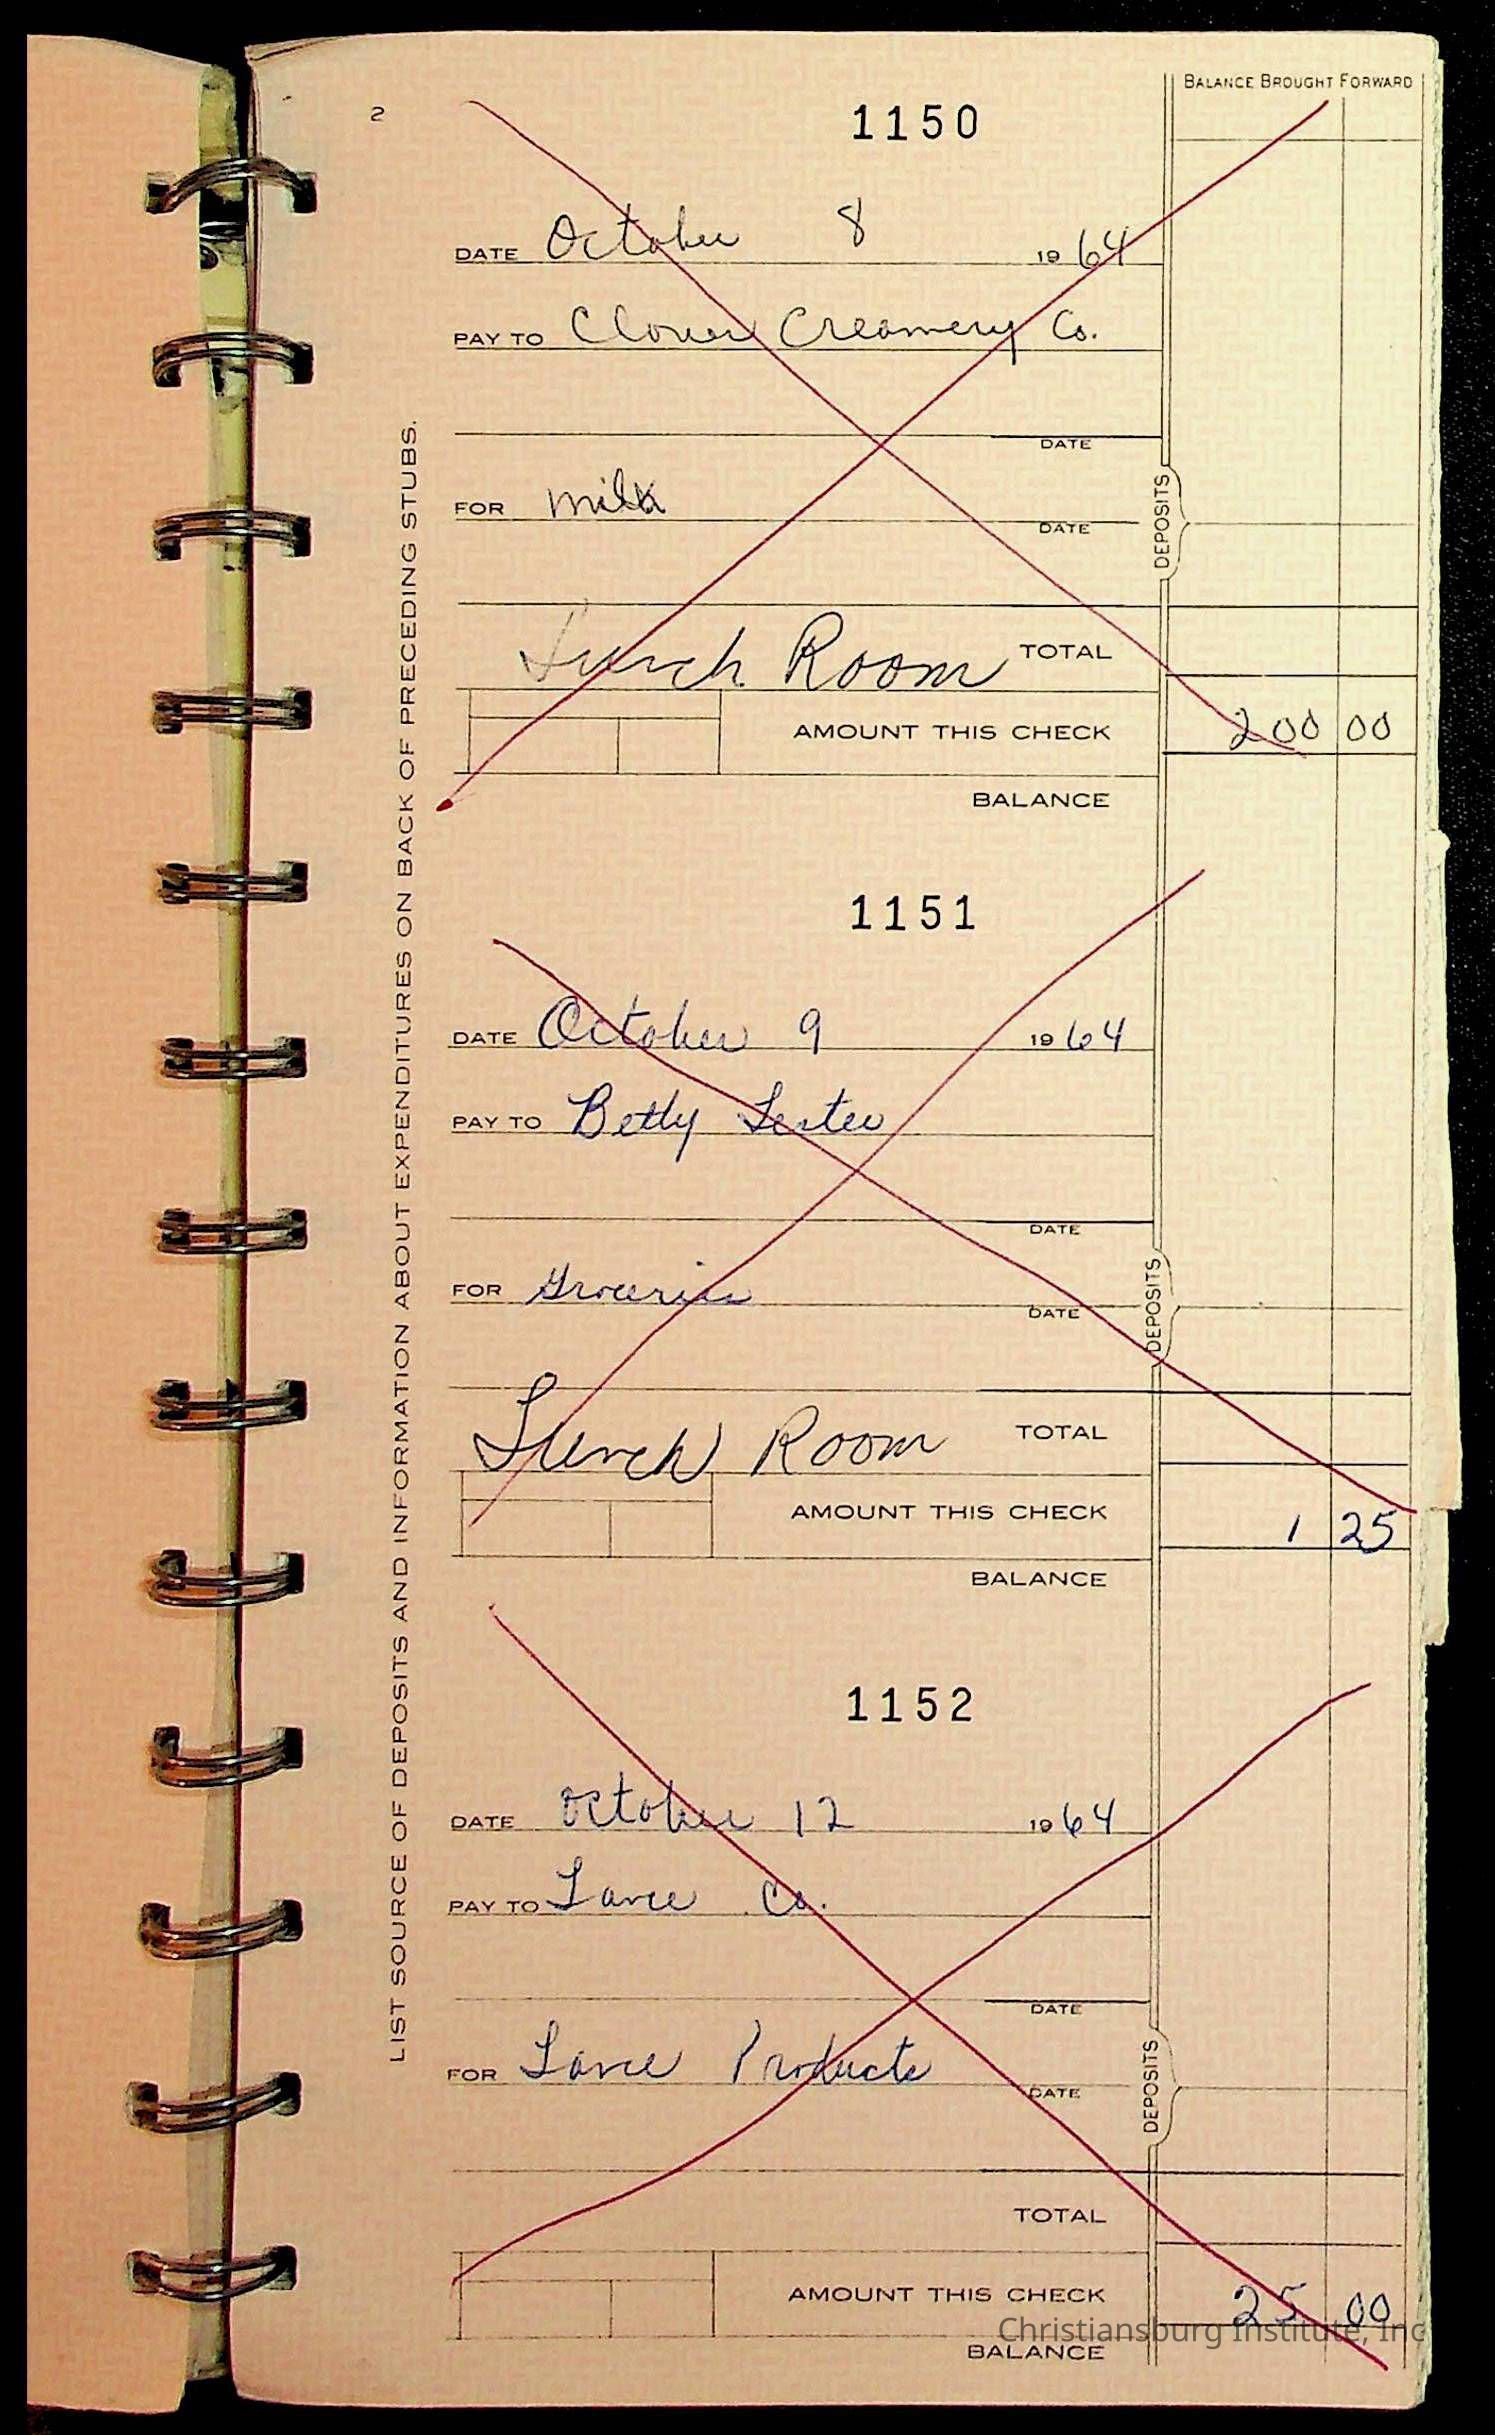 BALANCE BROUGHT FORWARD
2
1150
DATE October 8 1964
PAY TO Clover Creamery Co.
DATE
FOR milk
DATE
DEPOSITS
Lunch Room TOTAL
AMOUNT THIS CHECK 200 00
BALANCE
LIST SOURCE OF DEPOSITS AND INFORMATION ABOUT EXPENDITURES ON BACK OF PRECEDING STUBS.
1151
DATE October 9 1964
PAY TO Betty Lester
DATE
FOR Groceries
DATE
DEPOSITS
Lunch Room TOTAL
AMOUNT THIS CHECK 1 25
BALANCE
1152
DATE October 12 1964
PAY TO Lance Co.
DATE
FOR Lance Products
DATE
DEPOSITS
TOTAL
AMOUNT THIS CHECK 25 00
Christiansburg Institute, Inc
BALANCE